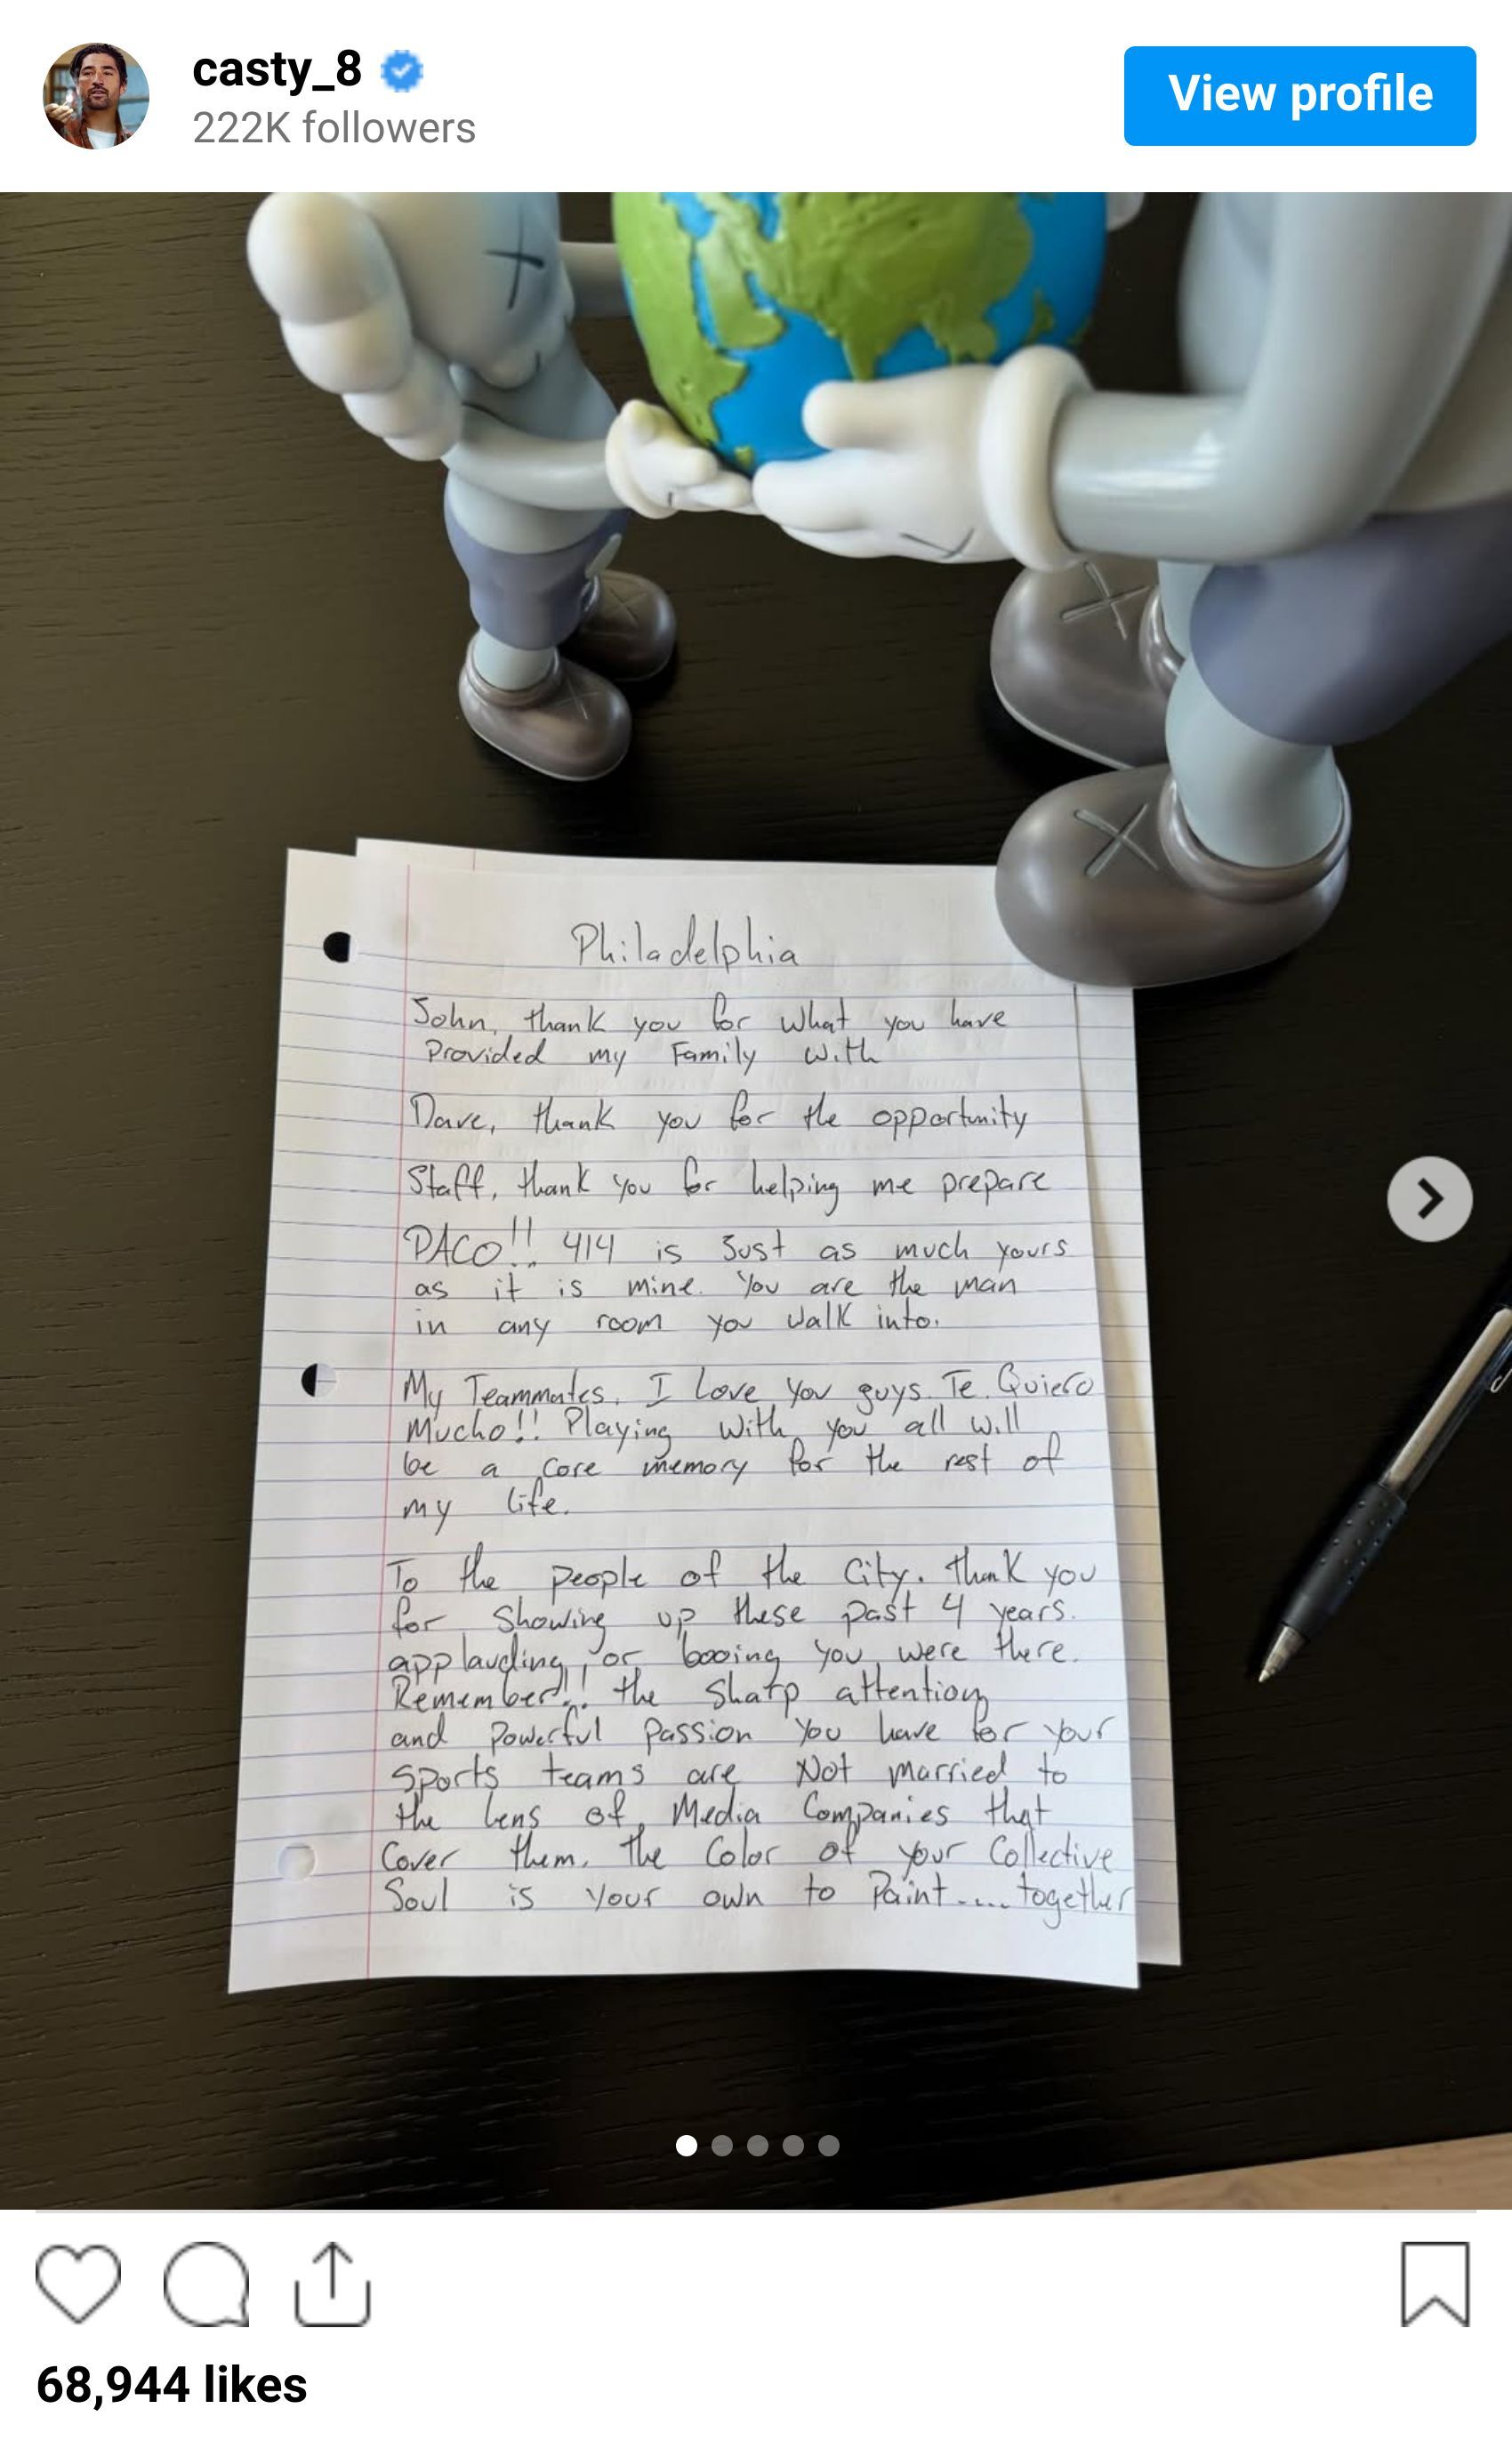 casty_8
222K followers
View profile
Philadelphia
John, thank you for what you have
Provided my Family with
Dave, thank you for the opportunity
Staff, thank you for helping me prepare
PACO!! 414 is Just as much yours
as it is mine. You are the man
in any room you walk into.
My Teammates, I Love you guys. Te Quiero
Mucho!! Playing with you all will
be a core memory for the rest of
my life.
To the people of the City. thank you
for showing up these past 4 years.
applauding, or booing you were there.
Remember!! the sharp attention
and powerful passion you have for your
sports teams are Not married to
the lens of Media Companies that
Cover them. The Color of your Collective
Soul is your own to Paint.... together
68,944 likes